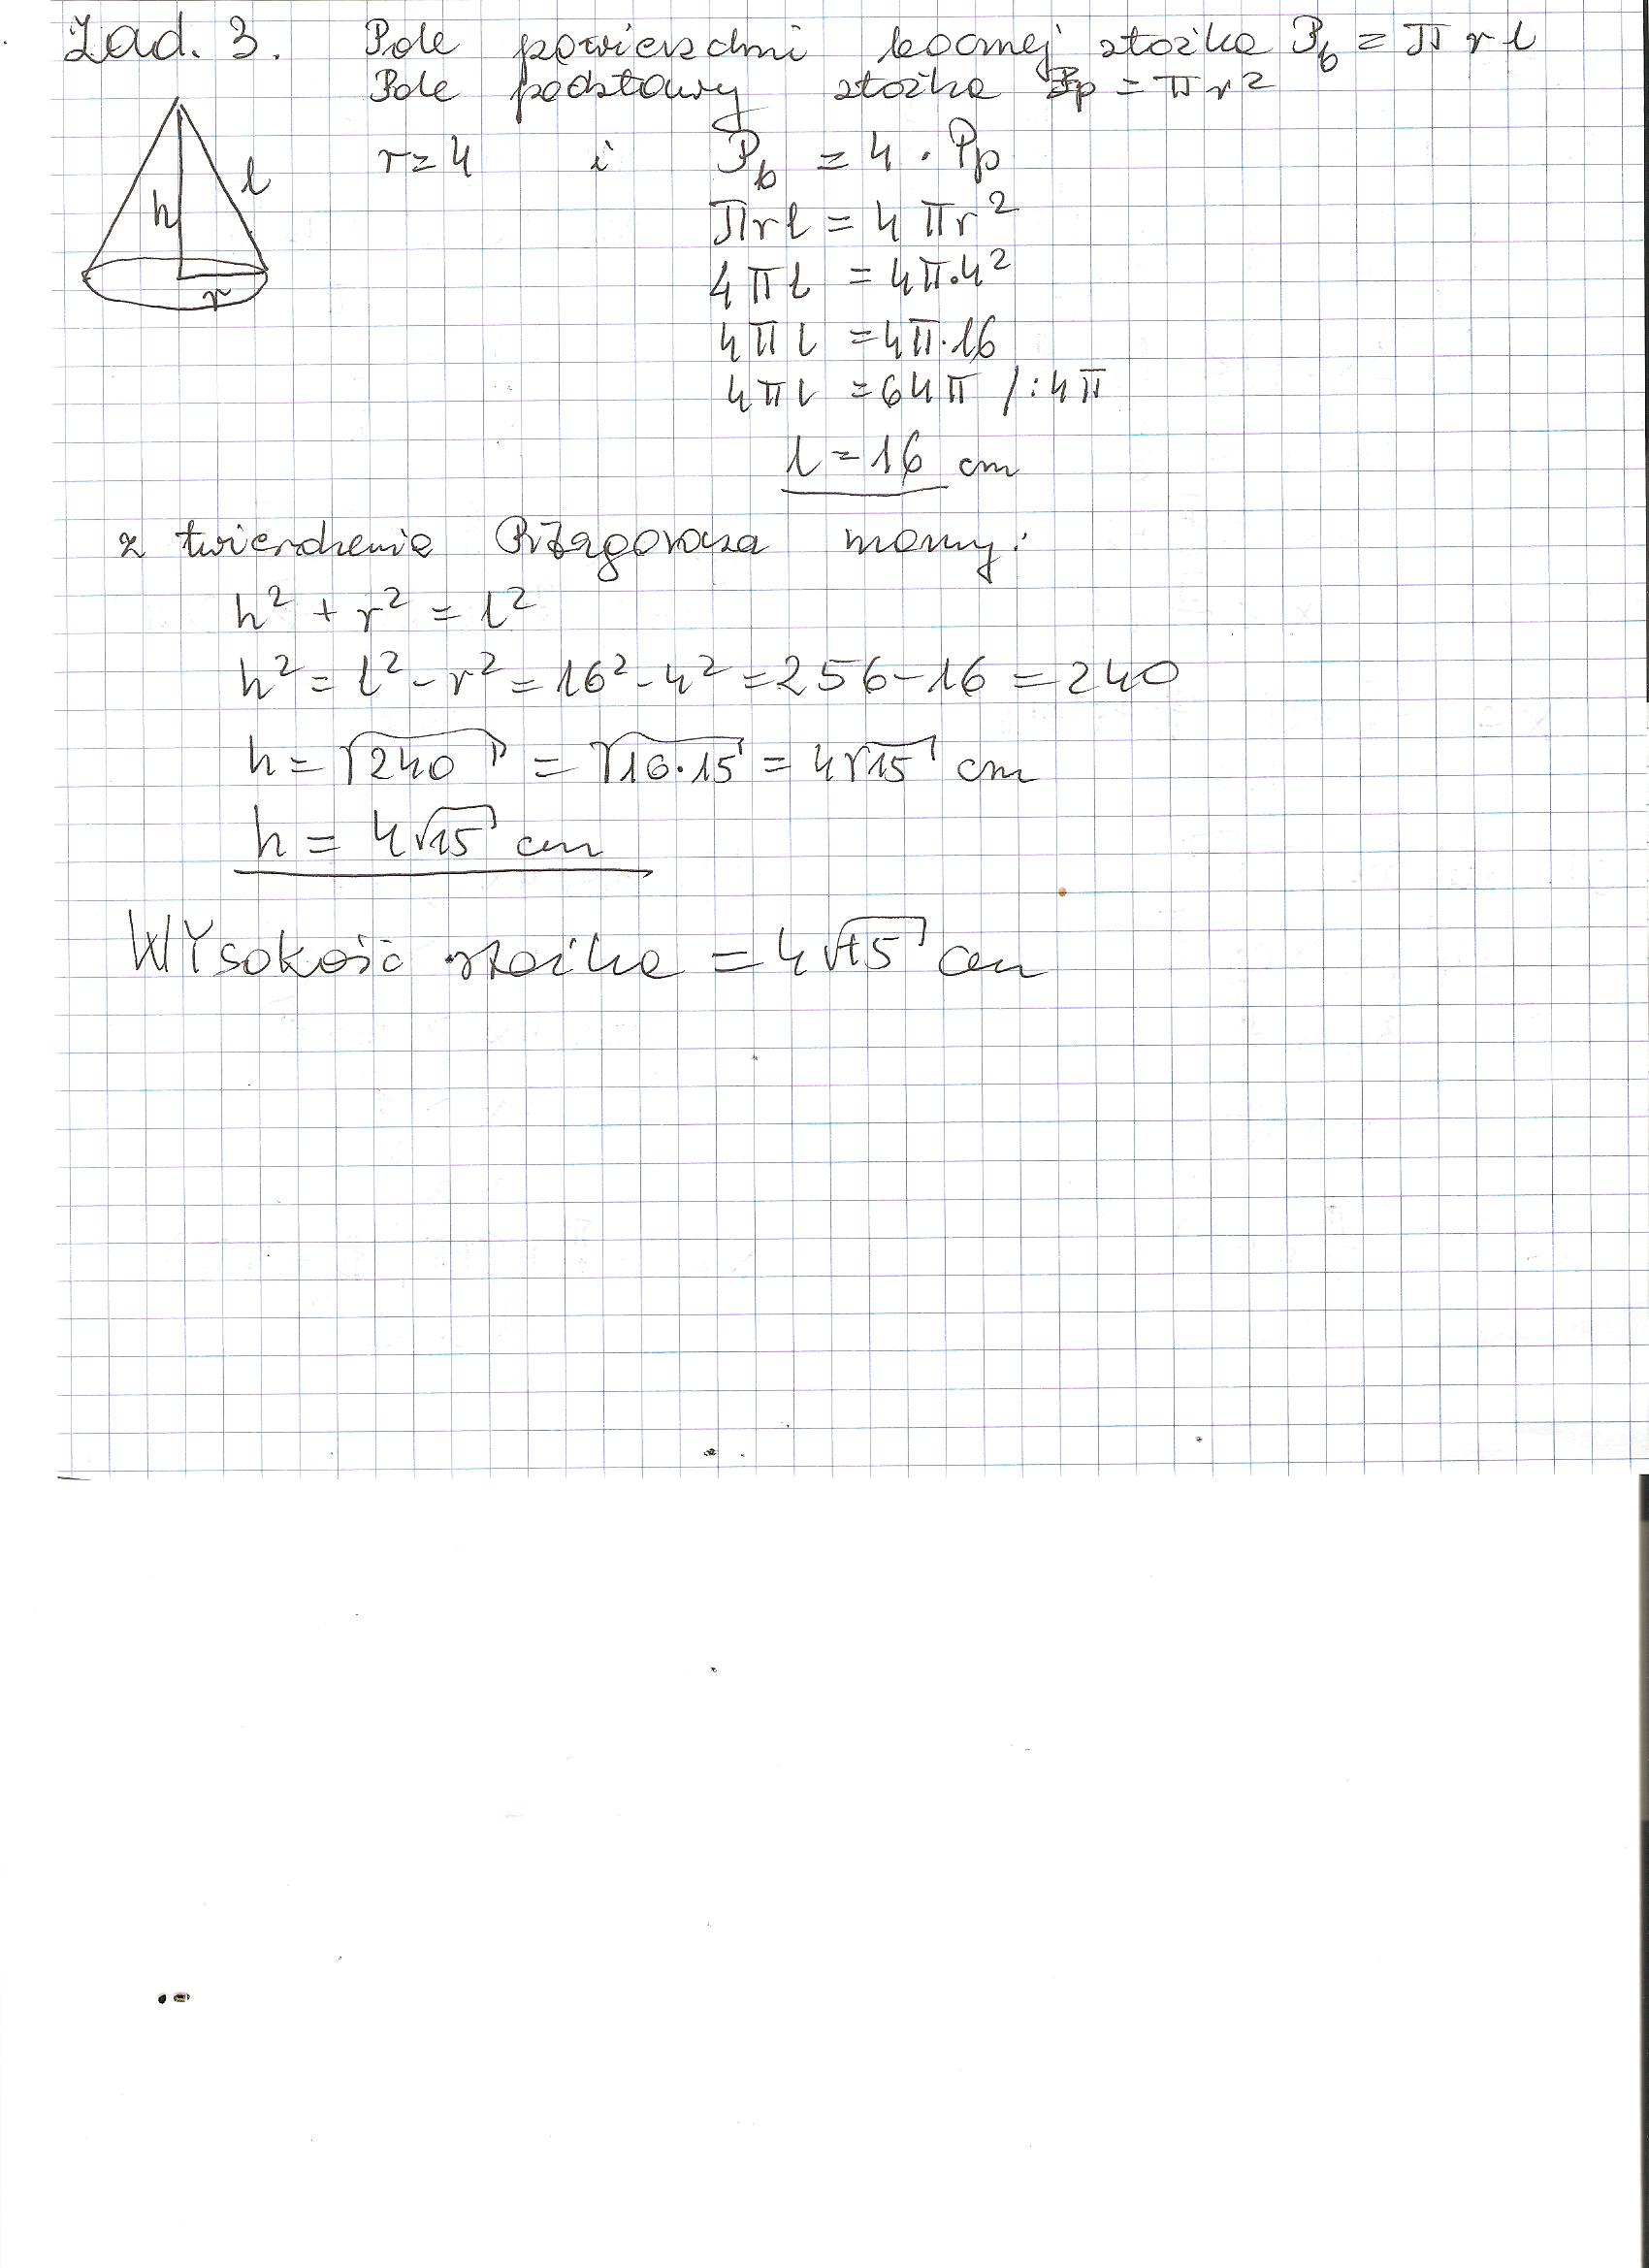 Zad. 3. Pole powierzchni bocznej stożka P_b = π r l
Pole podstawy stożka P_p = π r²
r = 4 i P_b = 4 · P_p
π r l = 4 π r²
4 π l = 4 π · 4²
4 π l = 4 π · 16
4 π l = 64 π / : 4 π
l = 16 cm
l
h
r
z twierdzenia Pitagorasa mamy:
h² + r² = l²
h² = l² - r² = 16² - 4² = 256 - 16 = 240
h = √240 = √16·15 = 4√15 cm
h = 4√15 cm
WYsokość stożka = 4√15 cm